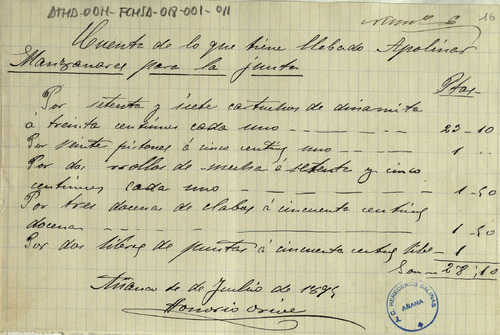 ATHA-DAH-FCHSA-018-001-011
Numº 6
16
Cuenta de lo que tiene llebado Apolinar
Manzanares para la junta
Ptas
Por setenta y siete cartuchos de dinamita
á treinta centimos cada uno 23-10
Por veinte pistones á cinco centims uno 1 "
Por dos rrollos de mecha á setenta y cinco
centimos cada uno 1-50
Por tres docenas de clabos á cincuenta centims
docena 1-50
Por dos libras de puntas á cincuenta centims libr 1
Son 28,10
Añana de Julio de
Honorio
HEREDEROS SALINAS
AÑANA